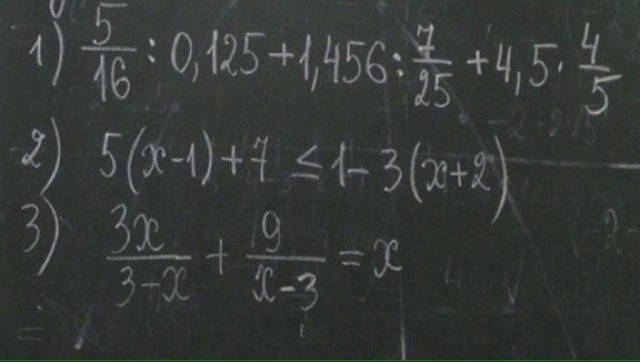 1) 5/16 : 0,125 + 1,456 : 7/25 + 4,5 · 4/5
2) 5(x-1)+7 ≤ 1-3(x+2)
3) 3x/(3-x) + 9/(x-3) = x